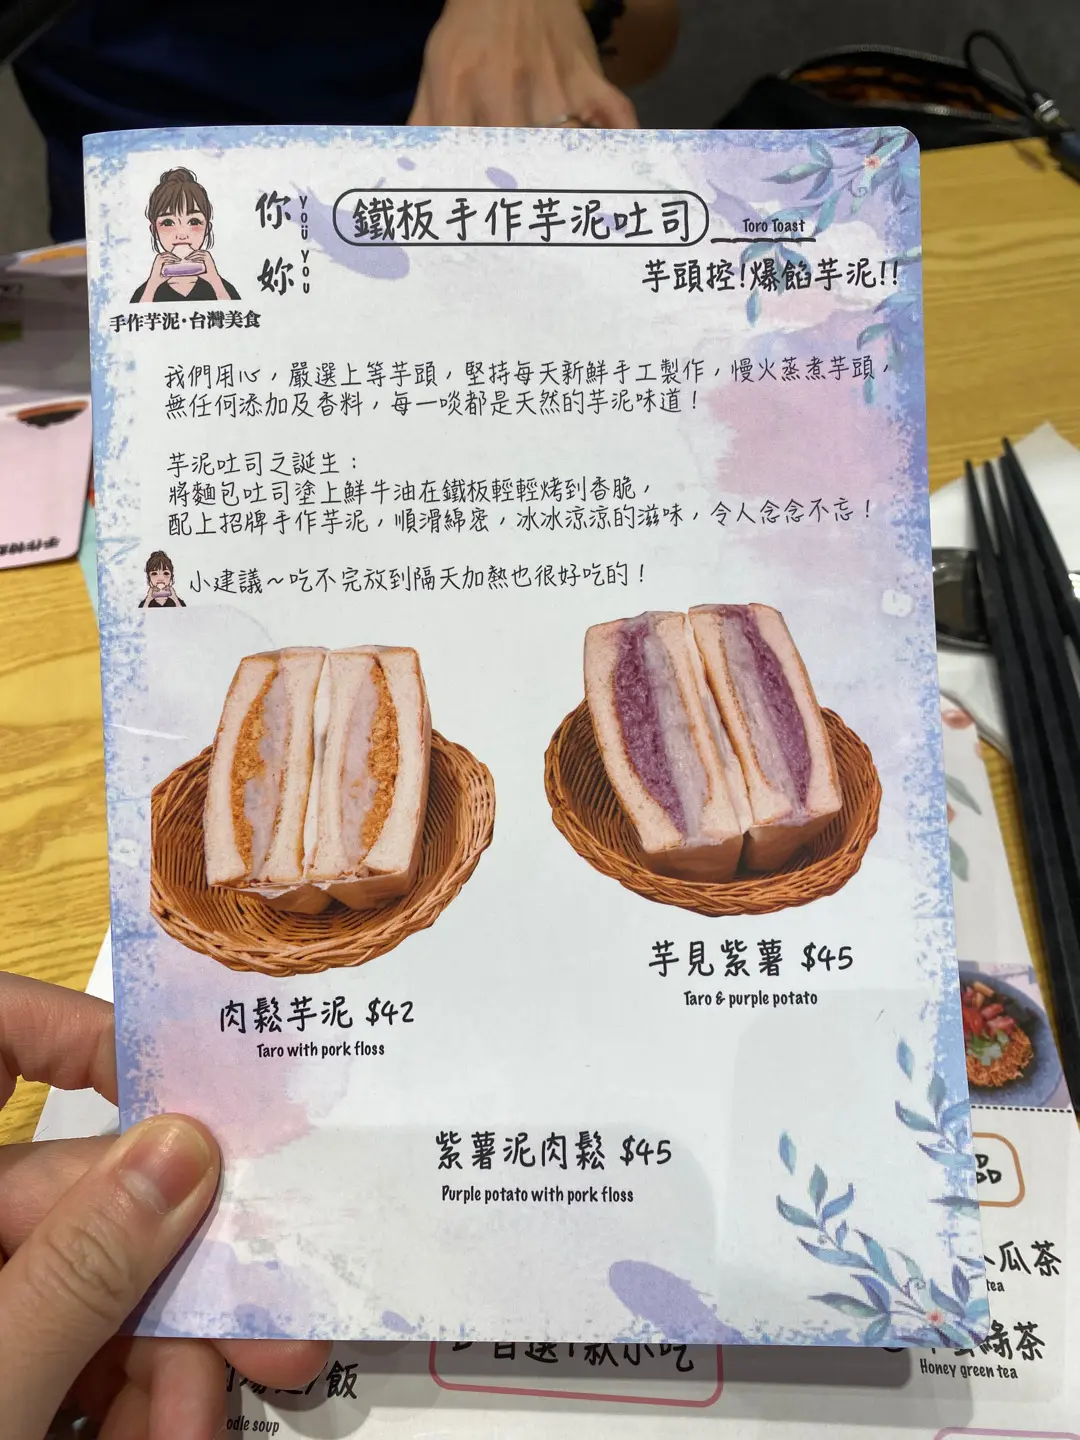 你妳
YOÜ YOU
鐵板手作芋泥吐司
Toro Toast
芋頭控!爆餡芋泥!!
手作芋泥·台灣美食
我們用心，嚴選上等芋頭，堅持每天新鮮手工製作，慢火蒸煮芋頭，
無任何添加及香料，每一啖都是天然的芋泥味道！
芋泥吐司之誕生：
將麵包吐司塗上鮮牛油在鐵板輕輕烤到香脆，
配上招牌手作芋泥，順滑綿密，冰冰涼涼的滋味，令人念念不忘！
小建議～吃不完放到隔天加熱也很好吃的！
芋見紫薯 $45
Taro & purple potato
肉鬆芋泥 $42
Taro with pork floss
紫薯泥肉鬆 $45
Purple potato with pork floss
品
瓜茶
tea
綠茶
Honey green tea
自選1款小吃
飯
odle soup